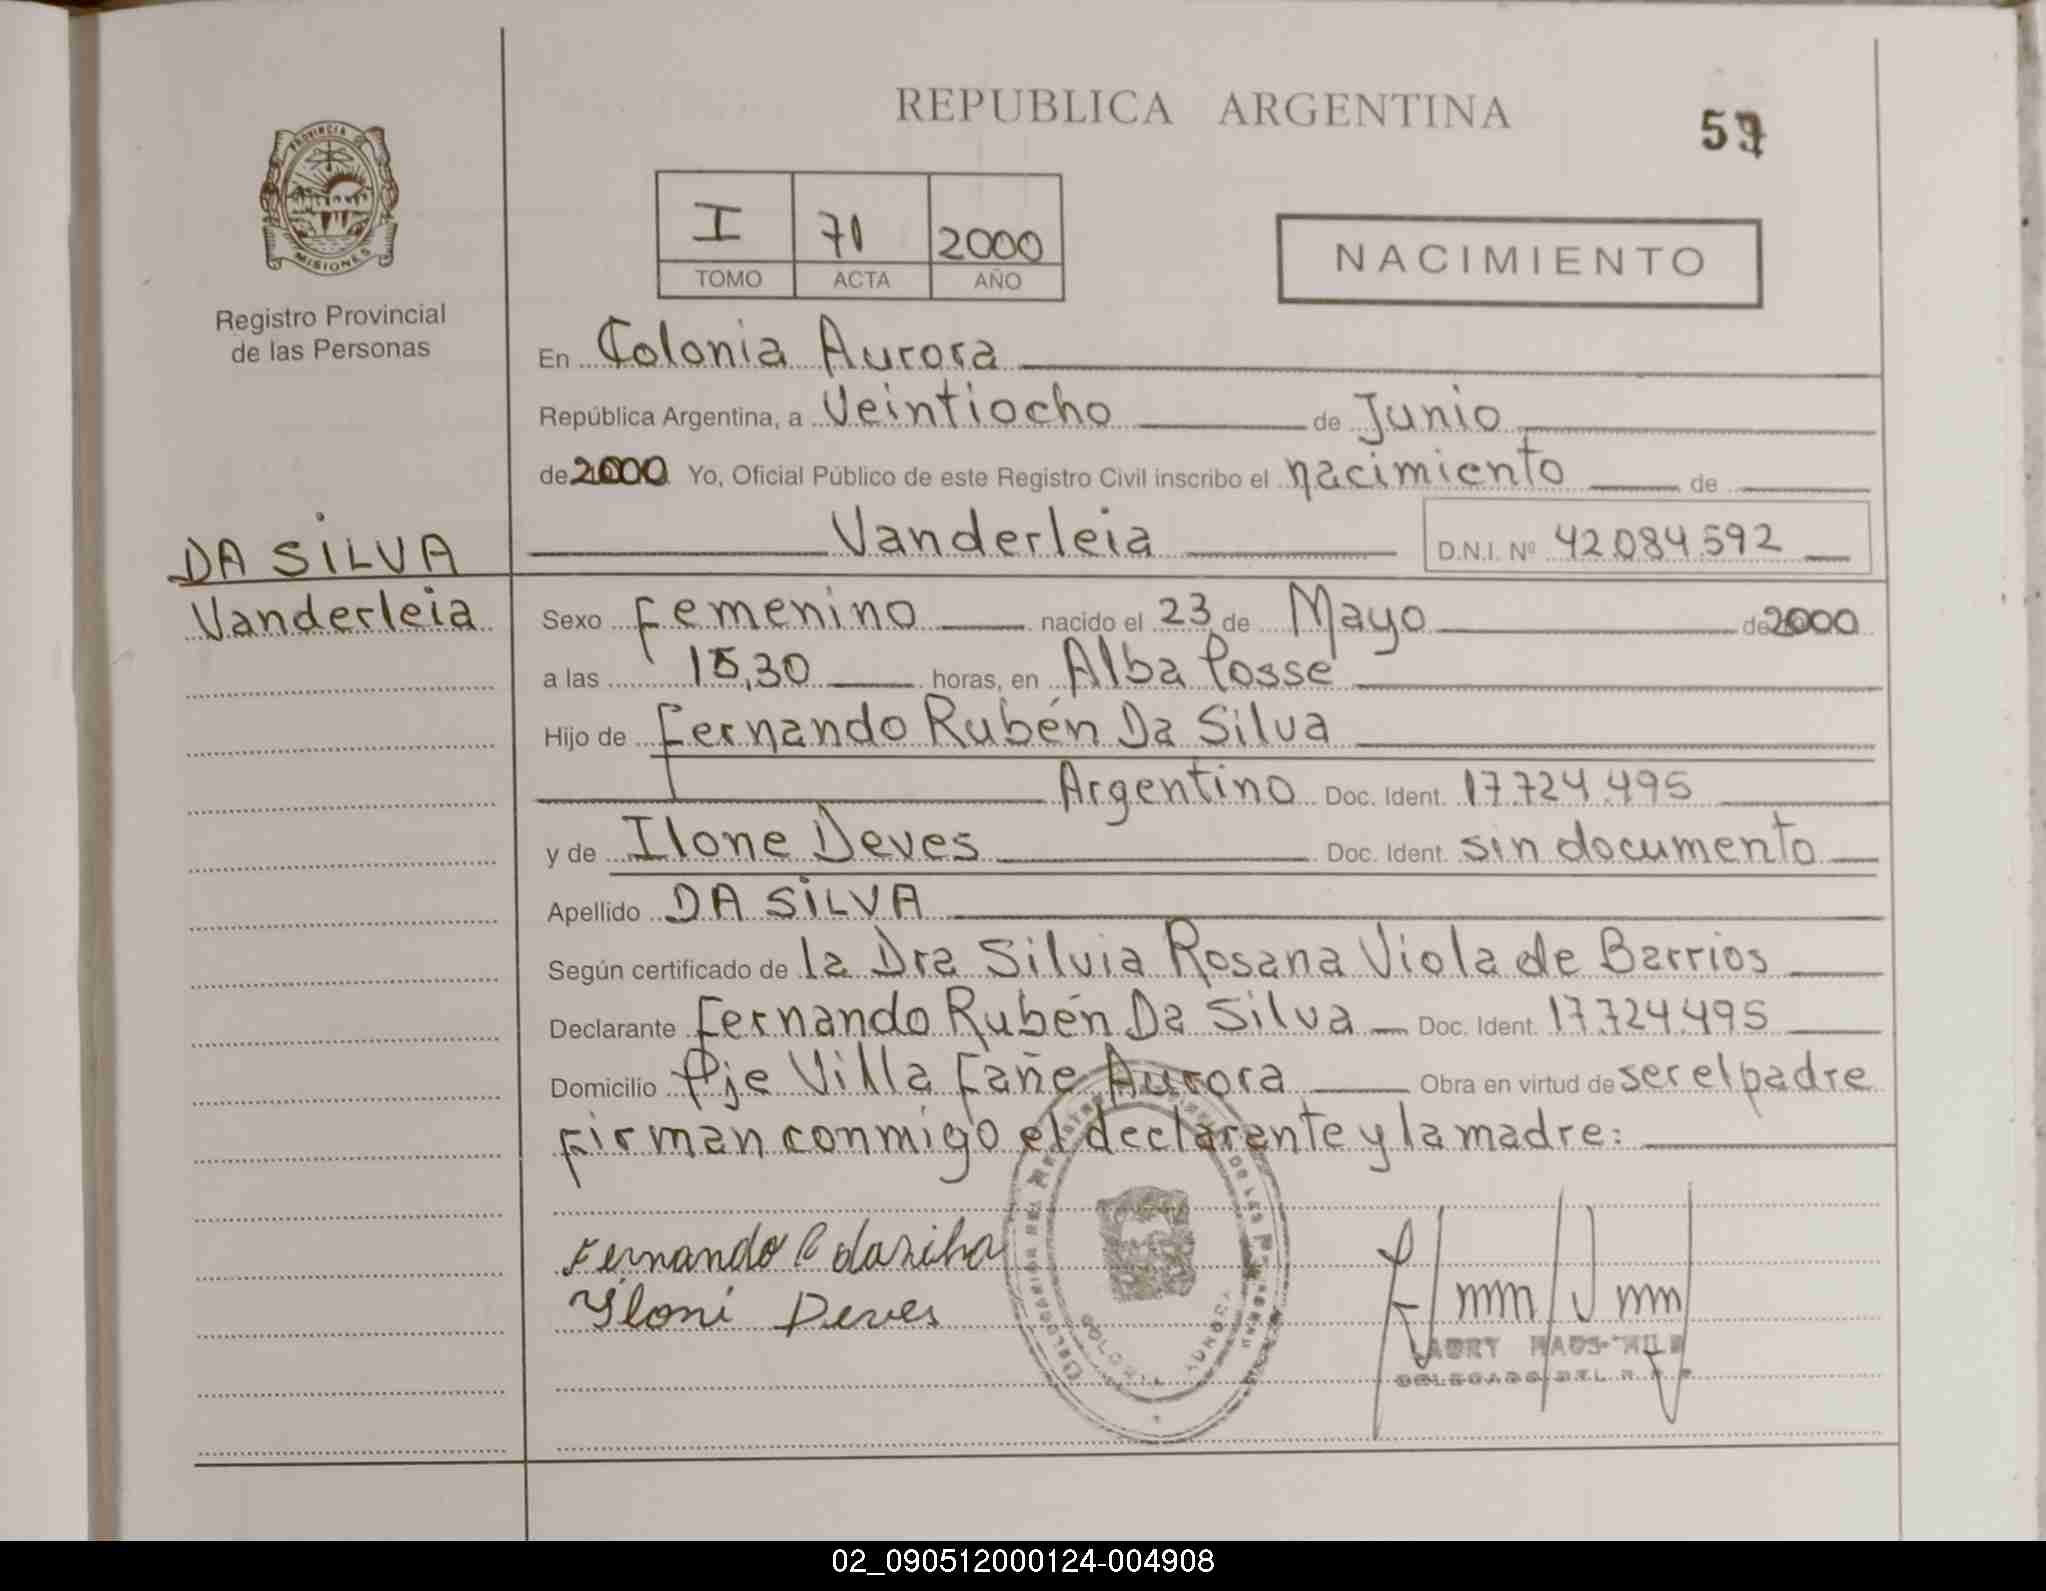 REPUBLICA ARGENTINA
PROVINCIA DE
MISIONES
Registro Provincial
de las Personas
I 71 2000
TOMO ACTA AÑO
NACIMIENTO
En Colonia Aurora
República Argentina, a Veintiocho de Junio
de 2000 Yo, Oficial Público de este Registro Civil inscribo el nacimiento de
Vanderleia D.N.I. Nº 42.084.592
DA SILVA
Vanderleia
Sexo Femenino nacido el 23 de Mayo de 2000
a las 15,30 horas, en Alba Posse
Hijo de Fernando Rubén Da Silva
Argentino Doc. Ident. 17.724.495
y de Ilone Deves Doc. Ident. sin documento
Apellido DA SILVA
Según certificado de la Dra Silvia Rosana Viola de Barrios
Declarante Fernando Rubén Da Silva Doc. Ident. 17.724.495
Domicilio Pje Villa Fañe Aurora Obra en virtud de ser el padre
firman conmigo el declarante y la madre:
Fernando R da silva
Yloni Deves
COLONIA AURORA
DELEGADO DEL R.P.P
02_090512000124-004908